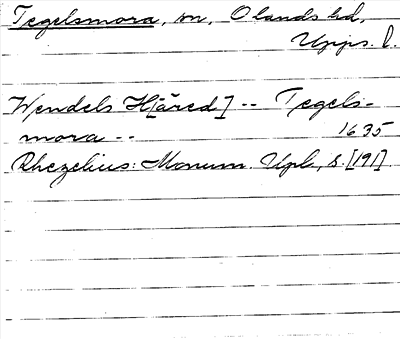 Tegelsmora, sn, Olands hd,
Upps. l.
Wendels H[äred] -- Tegels-
mora -- 1635
Rhezelius: Monum. Upl., s. [191]